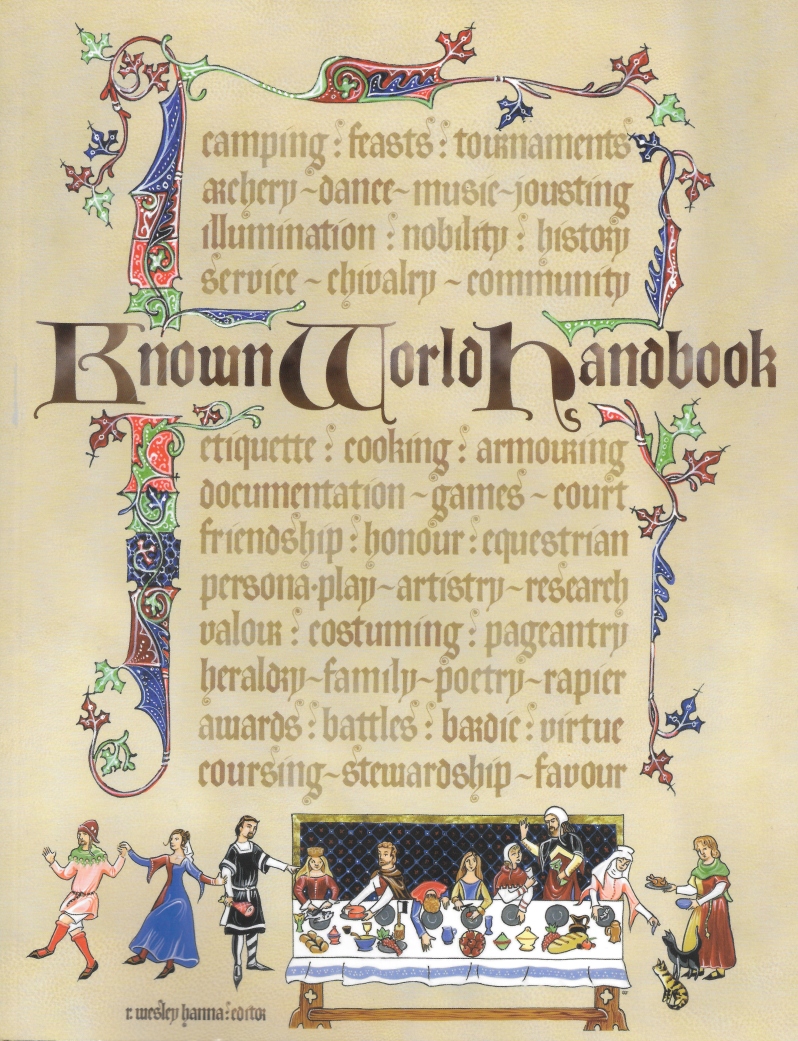 camping : feasts : tournaments
archery ~ dance ~ music ~ jousting
illumination : nobility : history
service ~ chivalry ~ community
Known World Handbook
etiquette : cooking : armouring
documentation ~ games ~ court
friendship : honour : equestrian
persona·play ~ artistry ~ research
valour : costuming : pageantry
heraldry ~ family ~ poetry ~ rapier
awards : battles : bardic : virtue
coursing ~ stewardship ~ favour
r. wesley hanna : editor